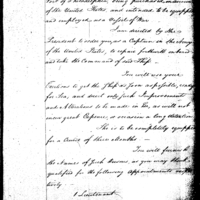 Port of Philadelphia, being purchased
of the United States and intended to be equipped
and employed, as a Vessel of War
I am directed by the
President to order you, as a Captain in the Navy
of the United States, to repair forthwith on board
and take the Command of said Ship.
You will use your
to get the Ship as soon as possible, ready
for Sea, and direct only such Improvements
and Alterations to be made in her, as will not
incur great Expence, or occasion a long detention
She is to be completely equipped
for a Cruise of three Months —
You will forward
the Names of such Persons, as you may think
qualified for the following appointments
1 Lieutenant